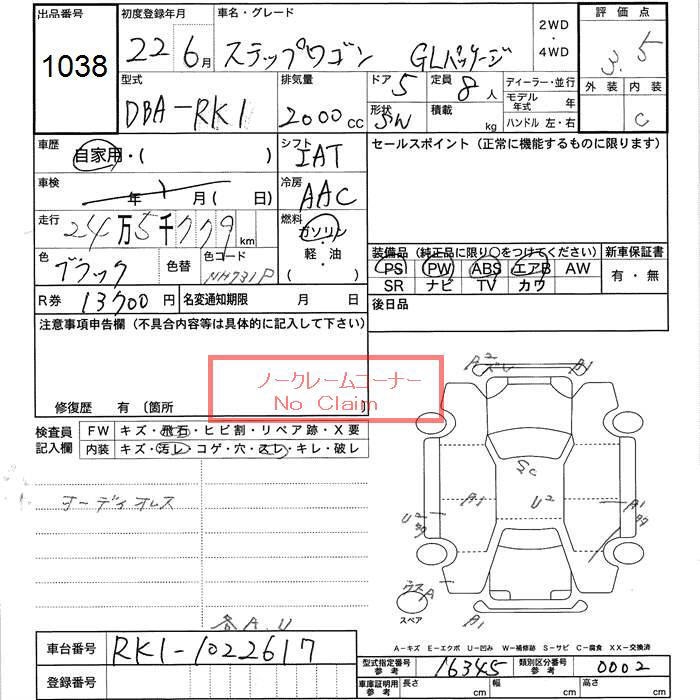 出品番号 初度登録年月 車名・グレード 2WD ・ 4WD 評価点
1038 22 6月 ステップワゴン GLパッケージ 3.5
型式 排気量 ドア 5 定員 8人 ディーラー・並行 外装 内装
DBA-RK1 2000cc 形状 SW 積載 kg モデル年式 年 C
ハンドル 左・右
車歴 自家用・( ) シフト IAT セールスポイント (正常に機能するものに限ります)
車検 年 月( 日) 冷房 AAC
走行 24万5千779km 燃料 ガソリン・軽・油・( )
色 ブラック 色替 色コード NH731P
装備品 (純正品に限り○をつけてください) 新車保証書
PS PW ABS エアB AW 有・無
SR ナビ TV カワ
R券 13700円 名変通知期限 月 日 後日品
注意事項申告欄 (不具合内容等は具体的に記入して下さい)
ノークレームコーナー
No Claim
修復歴 有 〔箇所
検査員記入欄 FW キズ・飛石・ヒビ割・リペア跡・X要
内装 キズ・汚レ・コゲ・穴・スレ・キレ・破レ
A2 ズレ A1
SC
A1 U2 A1
U2
オーディオレス
A
スペア A1
各A.U
A-キズ E-エクボ U-凹み W-補修跡 S-サビ C-腐食 XX-交換済
車台番号 RK1-1022617
型式指定番号 参考 16345 類別区分番号 参考 0002
登録番号
車庫証明用 参考 長さ cm 幅 cm 高さ cm